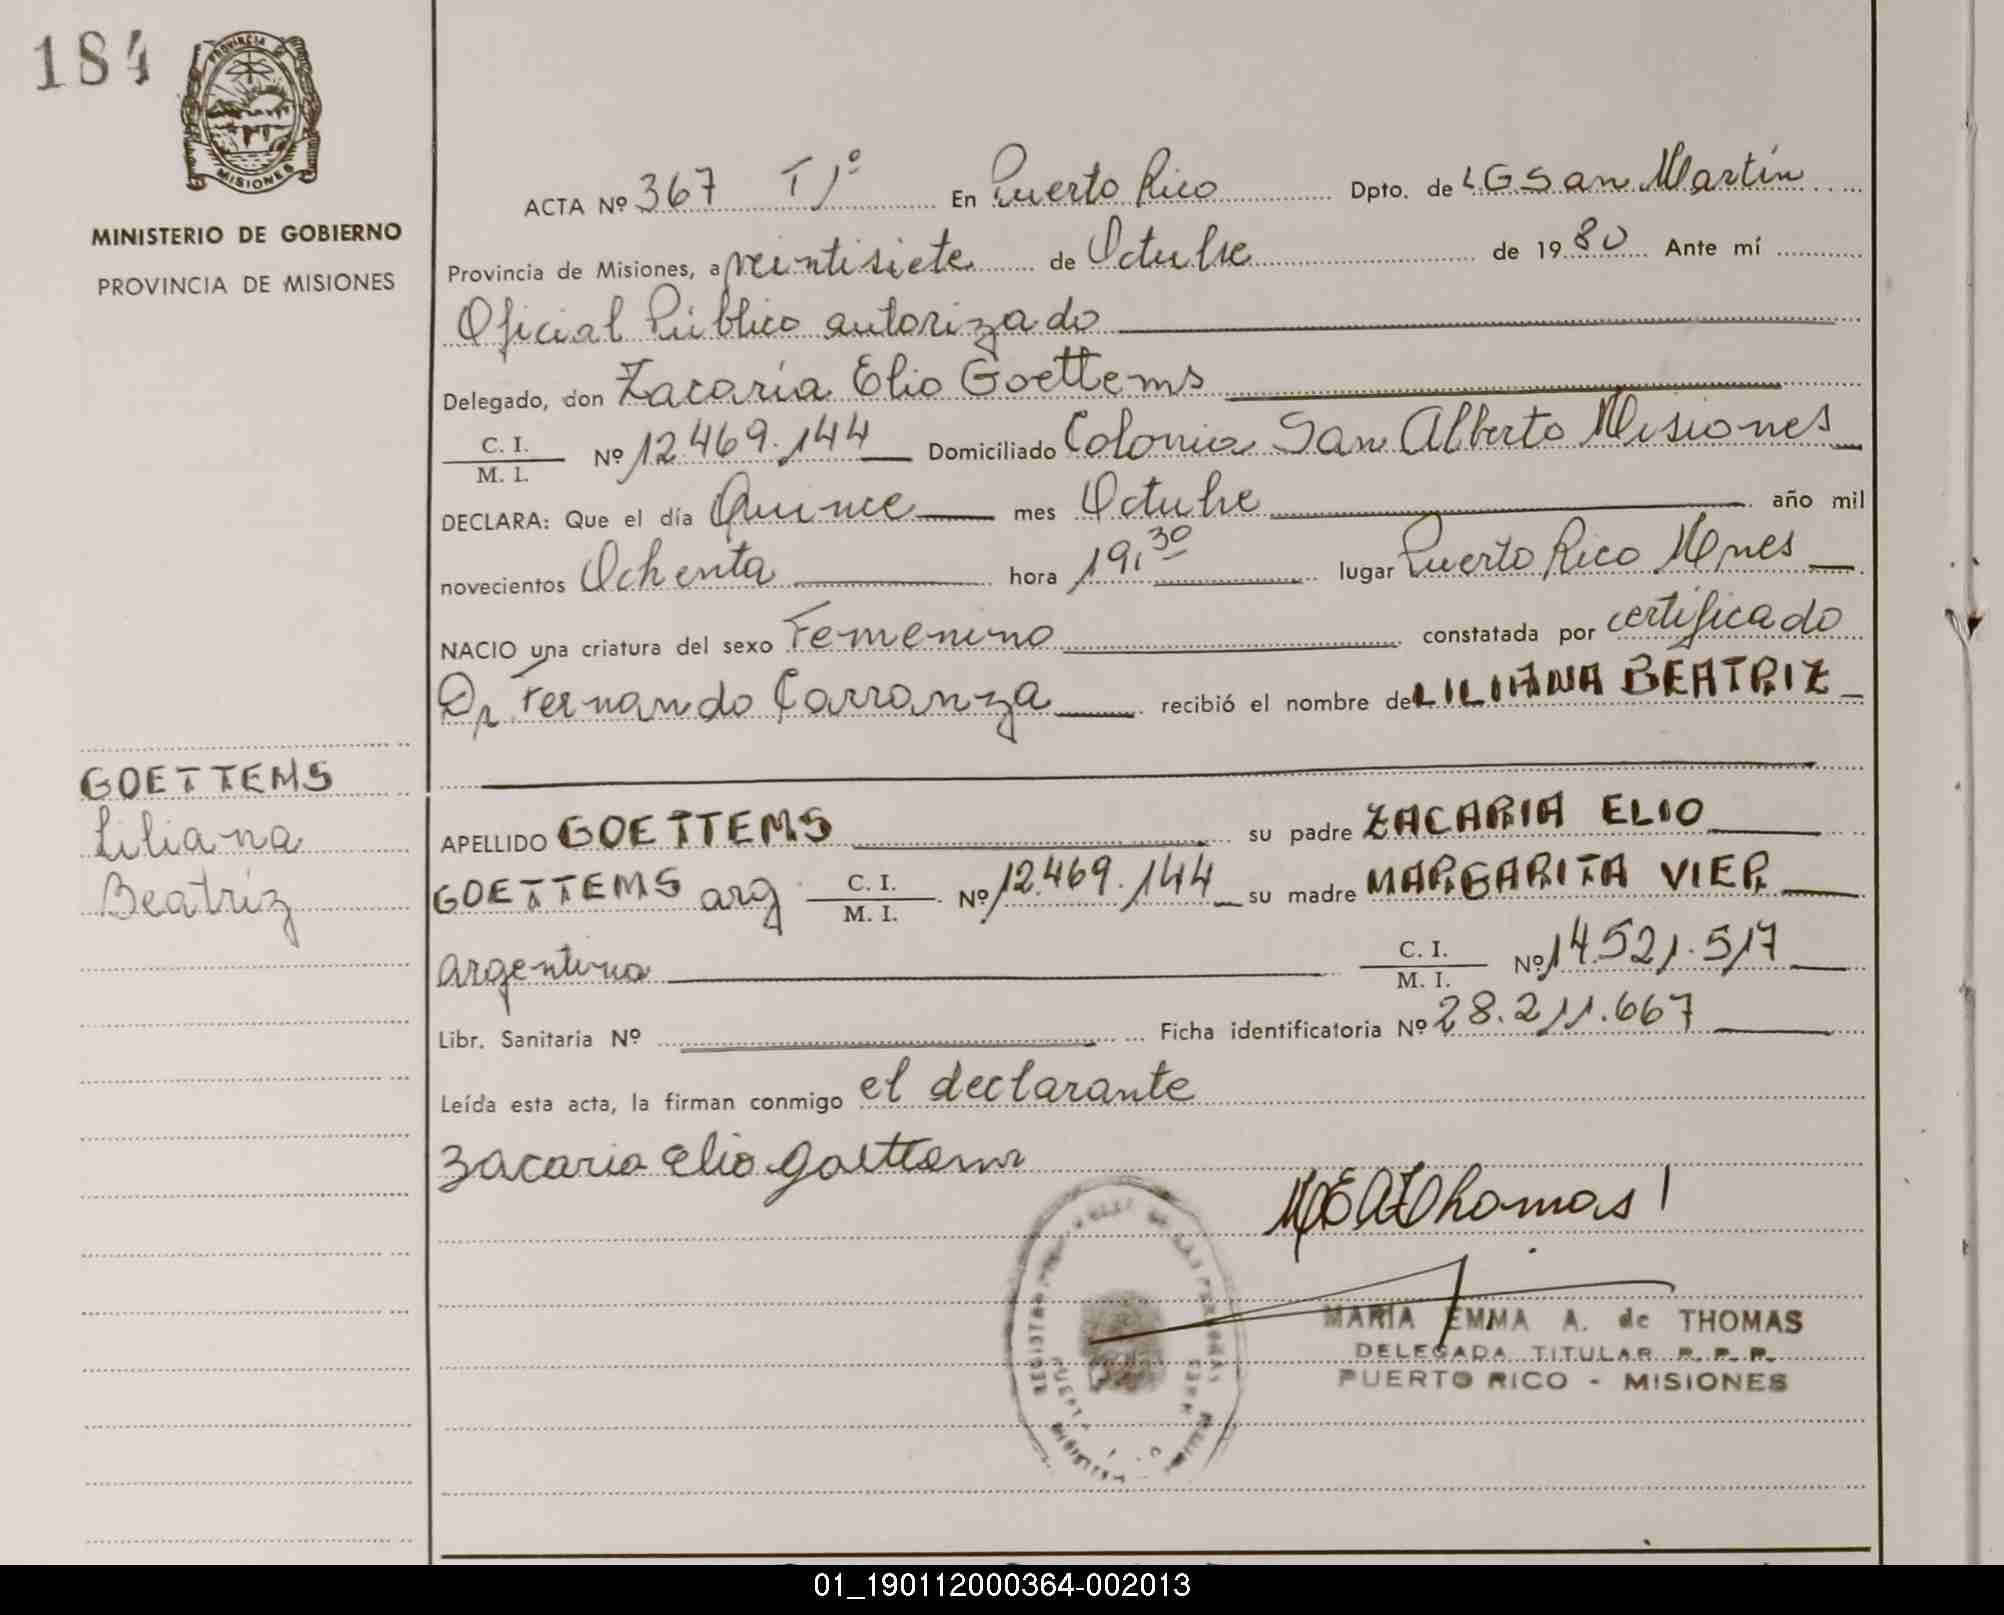 184
PROVINCIA DE
MISIONES
MINISTERIO DE GOBIERNO
PROVINCIA DE MISIONES
ACTA Nº 367 T 1º En Puerto Rico Dpto. de LGSan Martín
Provincia de Misiones, a veintisiete de Octubre de 1980 Ante mí
Oficial Público autorizado
Delegado, don Zacaría Elio Goettems
C. I.
M. I. Nº 12.469.144 Domiciliado Colonia San Alberto Misiones
DECLARA: Que el día Quince mes Octubre año mil
novecientos Ochenta hora 19,30 lugar Puerto Rico Mnes
NACIO una criatura del sexo Femenino constatada por certificado
Dr Fernando Carranza recibió el nombre de LILIANA BEATRIZ
GOETTEMS
Liliana
Beatríz
APELLIDO GOETTEMS su padre ZACARIA ELIO
GOETTEMS arg C. I.
M. I. Nº 12.469.144 su madre MARGARITA VIER
argentina C. I.
M. I. Nº 14.521.517
Libr. Sanitaria Nº Ficha identificatoria Nº 28.211.667
Leída esta acta, la firman conmigo el declarante
Zacaria Elio Goettems
MEAdThomas
MARIA EMMA A. de THOMAS
DELEGADA TITULAR R. P. P.
PUERTO RICO - MISIONES
01_190112000364-002013